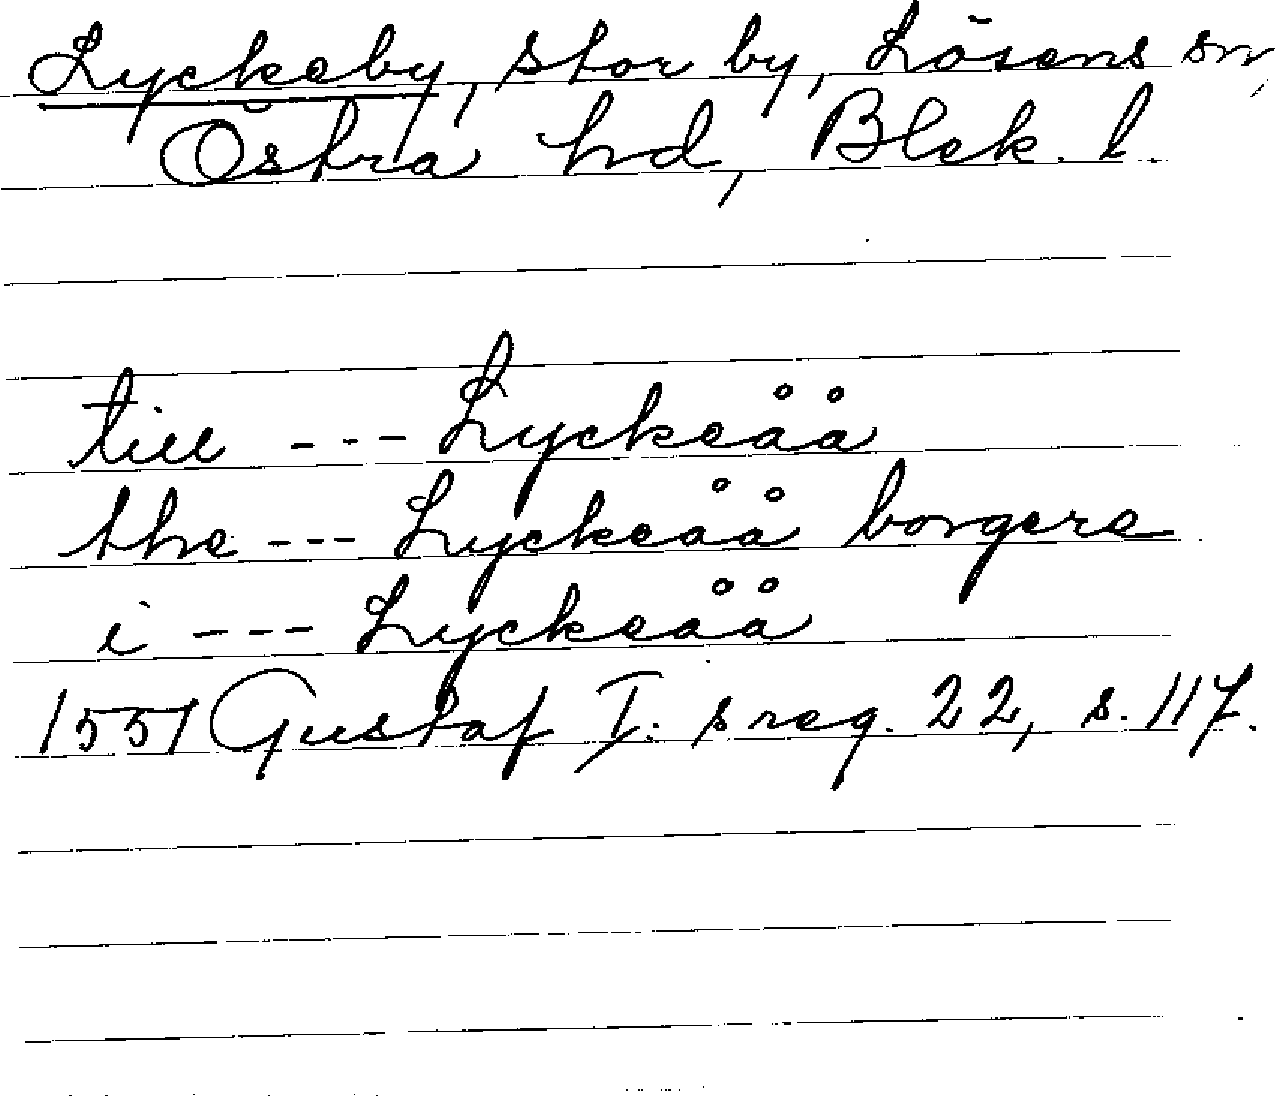 Lyckeby, stor by, Lösens sn,
Östra hd, Blek. l.
till --- Lyckeåå
the --- Lyckeåå borgere
i --- Lyckeåå
1551 Gustaf I:s reg. 22, s. 117.